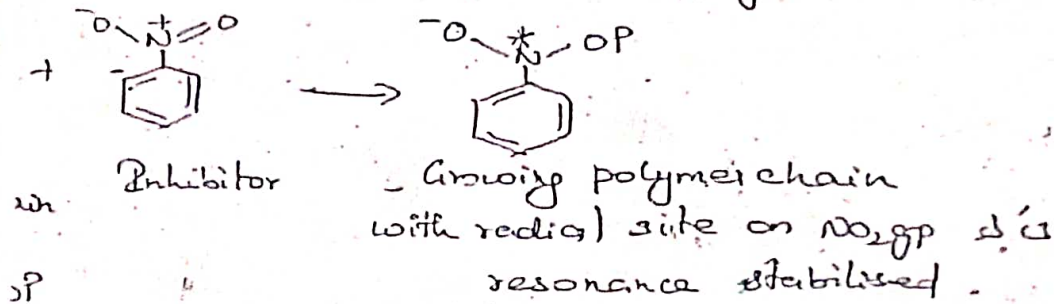 -O + N = O
+
-O * N OP
Inhibitor
- Growing polymer chain
with redical site on NO₂ gp & is
resonance stabilised.